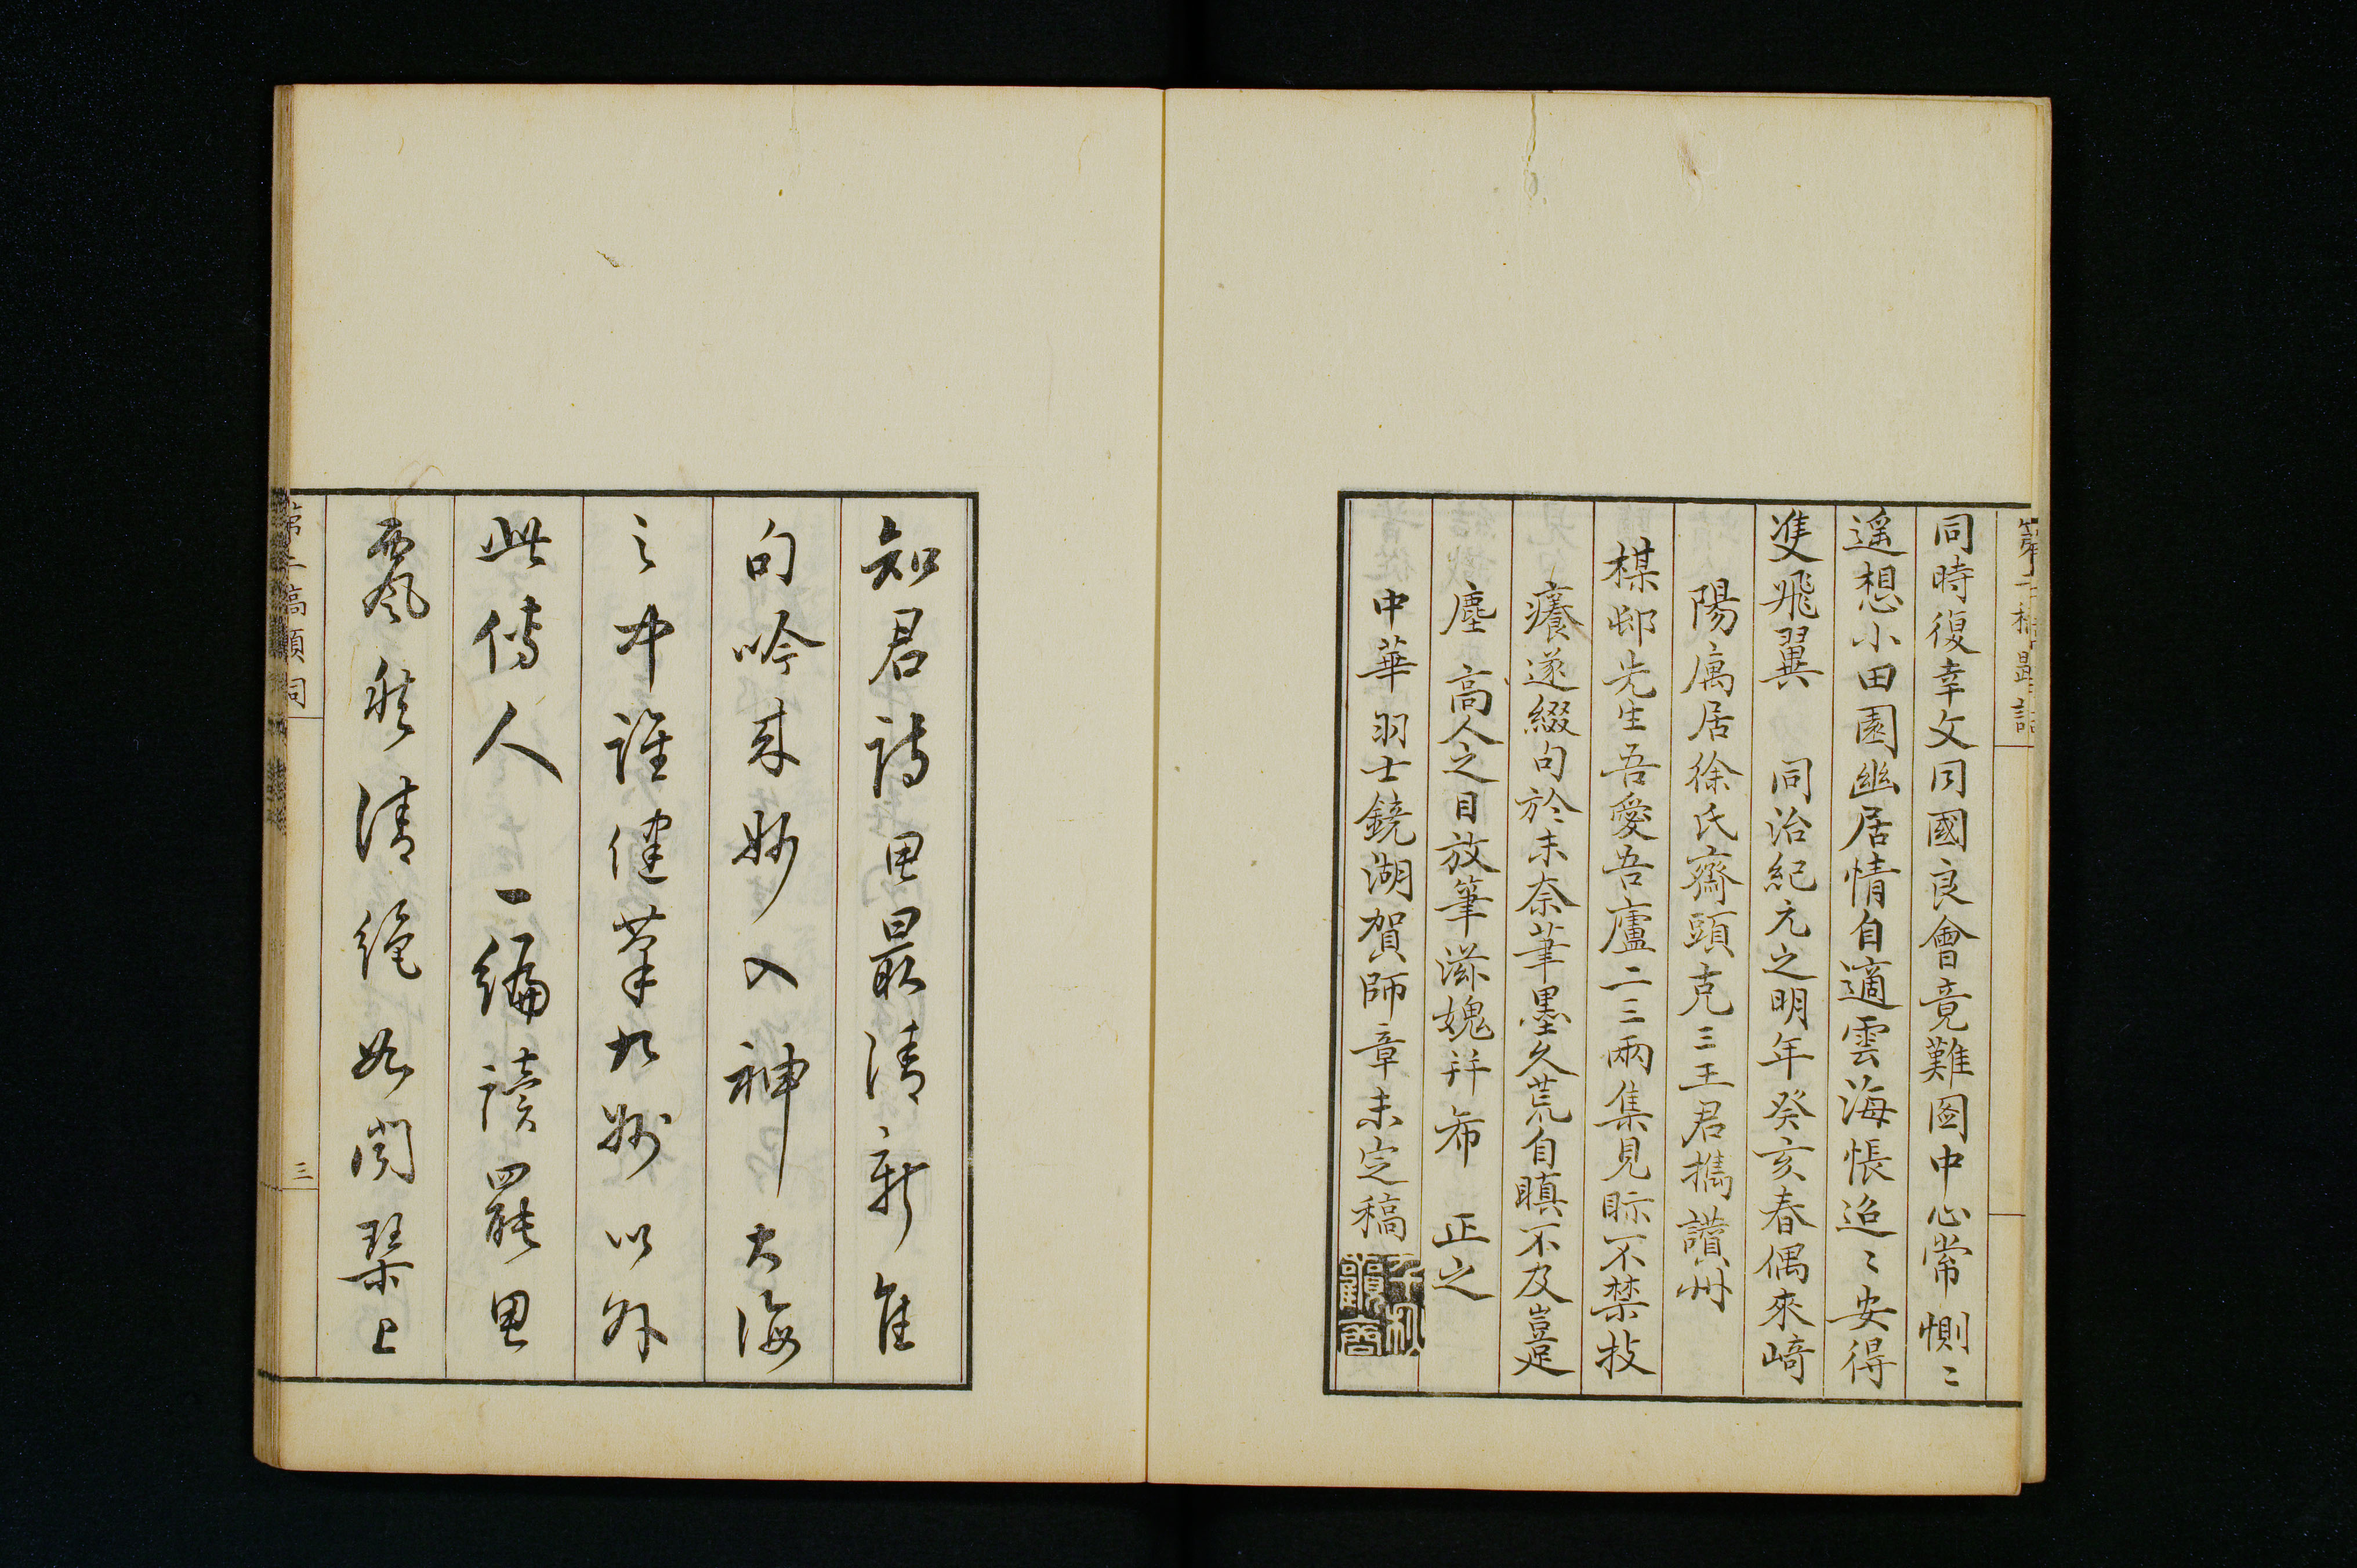 同時復幸文同國良會竟難圖中心常惻〻
遥想小田園幽居情自適雲海悵迢〻安得
隻飛翼　同治紀元之明年癸亥春偶來崎
陽寓居徐氏齋頭克三王君攜讃州
楳邨先生吾愛吾廬二三兩集見眎不禁技
癢遂綴句於末奈筆墨久荒自瞋不及豈足
塵　高人之目放筆滋媿并布　正之
中華羽士鏡湖賀師章未定稿
知君詩思最清新隹
句吟來妙入神大海
之中誰健筆九州以外
此傳人　一編讀罷思
飄然清絶如聞琹上
三